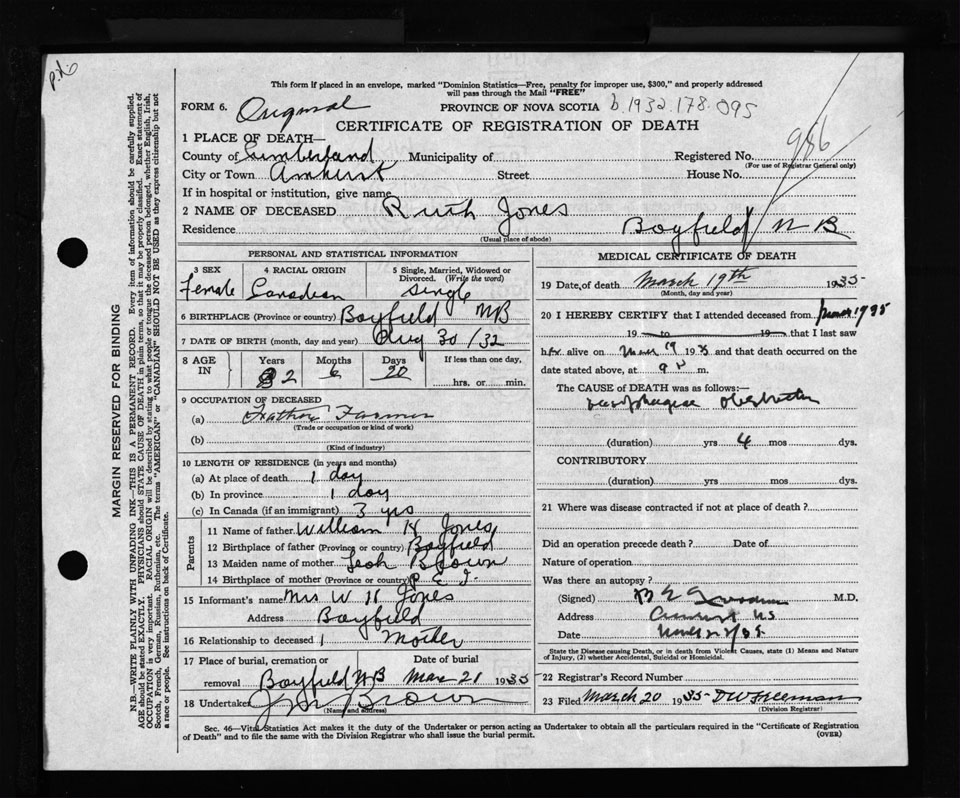 This form if placed in an envelope, marked "Dominion Statistics—Free, penalty for improper use, $300," and properly addressed
will pass through the Mail "FREE"
FORM 6. Original PROVINCE OF NOVA SCOTIA b 1932.178.095
CERTIFICATE OF REGISTRATION OF DEATH
986
1 PLACE OF DEATH—
County of Cumberland Municipality of Registered No.
(For use of Registrar General only)
City or Town Amherst Street House No.
If in hospital or institution, give name
2 NAME OF DECEASED Ruth Jones
Residence Bayfield N B
(Usual place of abode)
PERSONAL AND STATISTICAL INFORMATION
3 SEX 4 RACIAL ORIGIN 5 Single, Married, Widowed or
Divorced. (Write the word)
Female Canadian Single
6 BIRTHPLACE (Province or country) Bayfield NB
7 DATE OF BIRTH (month, day and year) Aug 30/32
8 AGE IN Years Months Days If less than one day,
2 6 20 hrs. or min.
9 OCCUPATION OF DECEASED
(a) Father Farmer
(Trade or occupation or kind of work)
(b)
(Kind of industry)
10 LENGTH OF RESIDENCE (in years and months)
(a) At place of death 1 day
(b) In province 1 day
(c) In Canada (if an immigrant) 3 yrs
Parents
11 Name of father William H Jones
12 Birthplace of father (Province or country) Bayfield
13 Maiden name of mother Leah Brown
14 Birthplace of mother (Province or country) P. E. I.
15 Informant's name Mrs W H Jones
Address Bayfield
16 Relationship to deceased Mother
17 Place of burial, cremation or Date of burial
removal Bayfield NB Mar 21 1935
18 Undertaker Brown
(Name and address)
MEDICAL CERTIFICATE OF DEATH
19 Date of death March 19th 1935
(Month, day and year)
20 I HEREBY CERTIFY that I attended deceased from
19 to 19 that I last saw
her alive on Mar 19 and that death occurred on
date stated above, at 9 m.
The CAUSE OF DEATH was as follows:—
Obstruction
(duration) yrs 4 mos dys.
CONTRIBUTORY
(duration) yrs mos dys.
21 Where was disease contracted if not at place of death?
Did an operation precede death? Date of
Nature of operation
Was there an autopsy?
(Signed) M.D.
Address Amherst NS
Date
State the Disease causing Death, or in death from Violent Causes, state (1) Means and
Nature of Injury, (2) whether Accidental, Suicidal or Homicidal.
22 Registrar's Record Number
23 Filed March 20 1935 D W Freeman
(Division Registrar)
Sec. 46—Vital Statistics Act makes it the duty of the Undertaker or person acting as Undertaker to obtain all the particulars required in the "Certificate of Registration
of Death" and to file the same with the Division Registrar who shall issue the burial permit. (OVER)
MARGIN RESERVED FOR BINDING
N.B.—WRITE PLAINLY WITH UNFADING INK—THIS IS A PERMANENT RECORD. Every item of information should be carefully supplied.
AGE should be stated EXACTLY. PHYSICIANS should STATE CAUSE OF DEATH in plain terms, so that it may be properly classified. Exact statement of
OCCUPATION is very important. RACIAL ORIGIN will be described by stating to what people or tongue the deceased person belonged, whether English, Irish,
Scotch, French, German, Russian, Ruthenian, etc. The terms "AMERICAN" or "CANADIAN" SHOULD NOT BE USED as they express citizenship but not
a race or people. See instructions on back of Certificate.